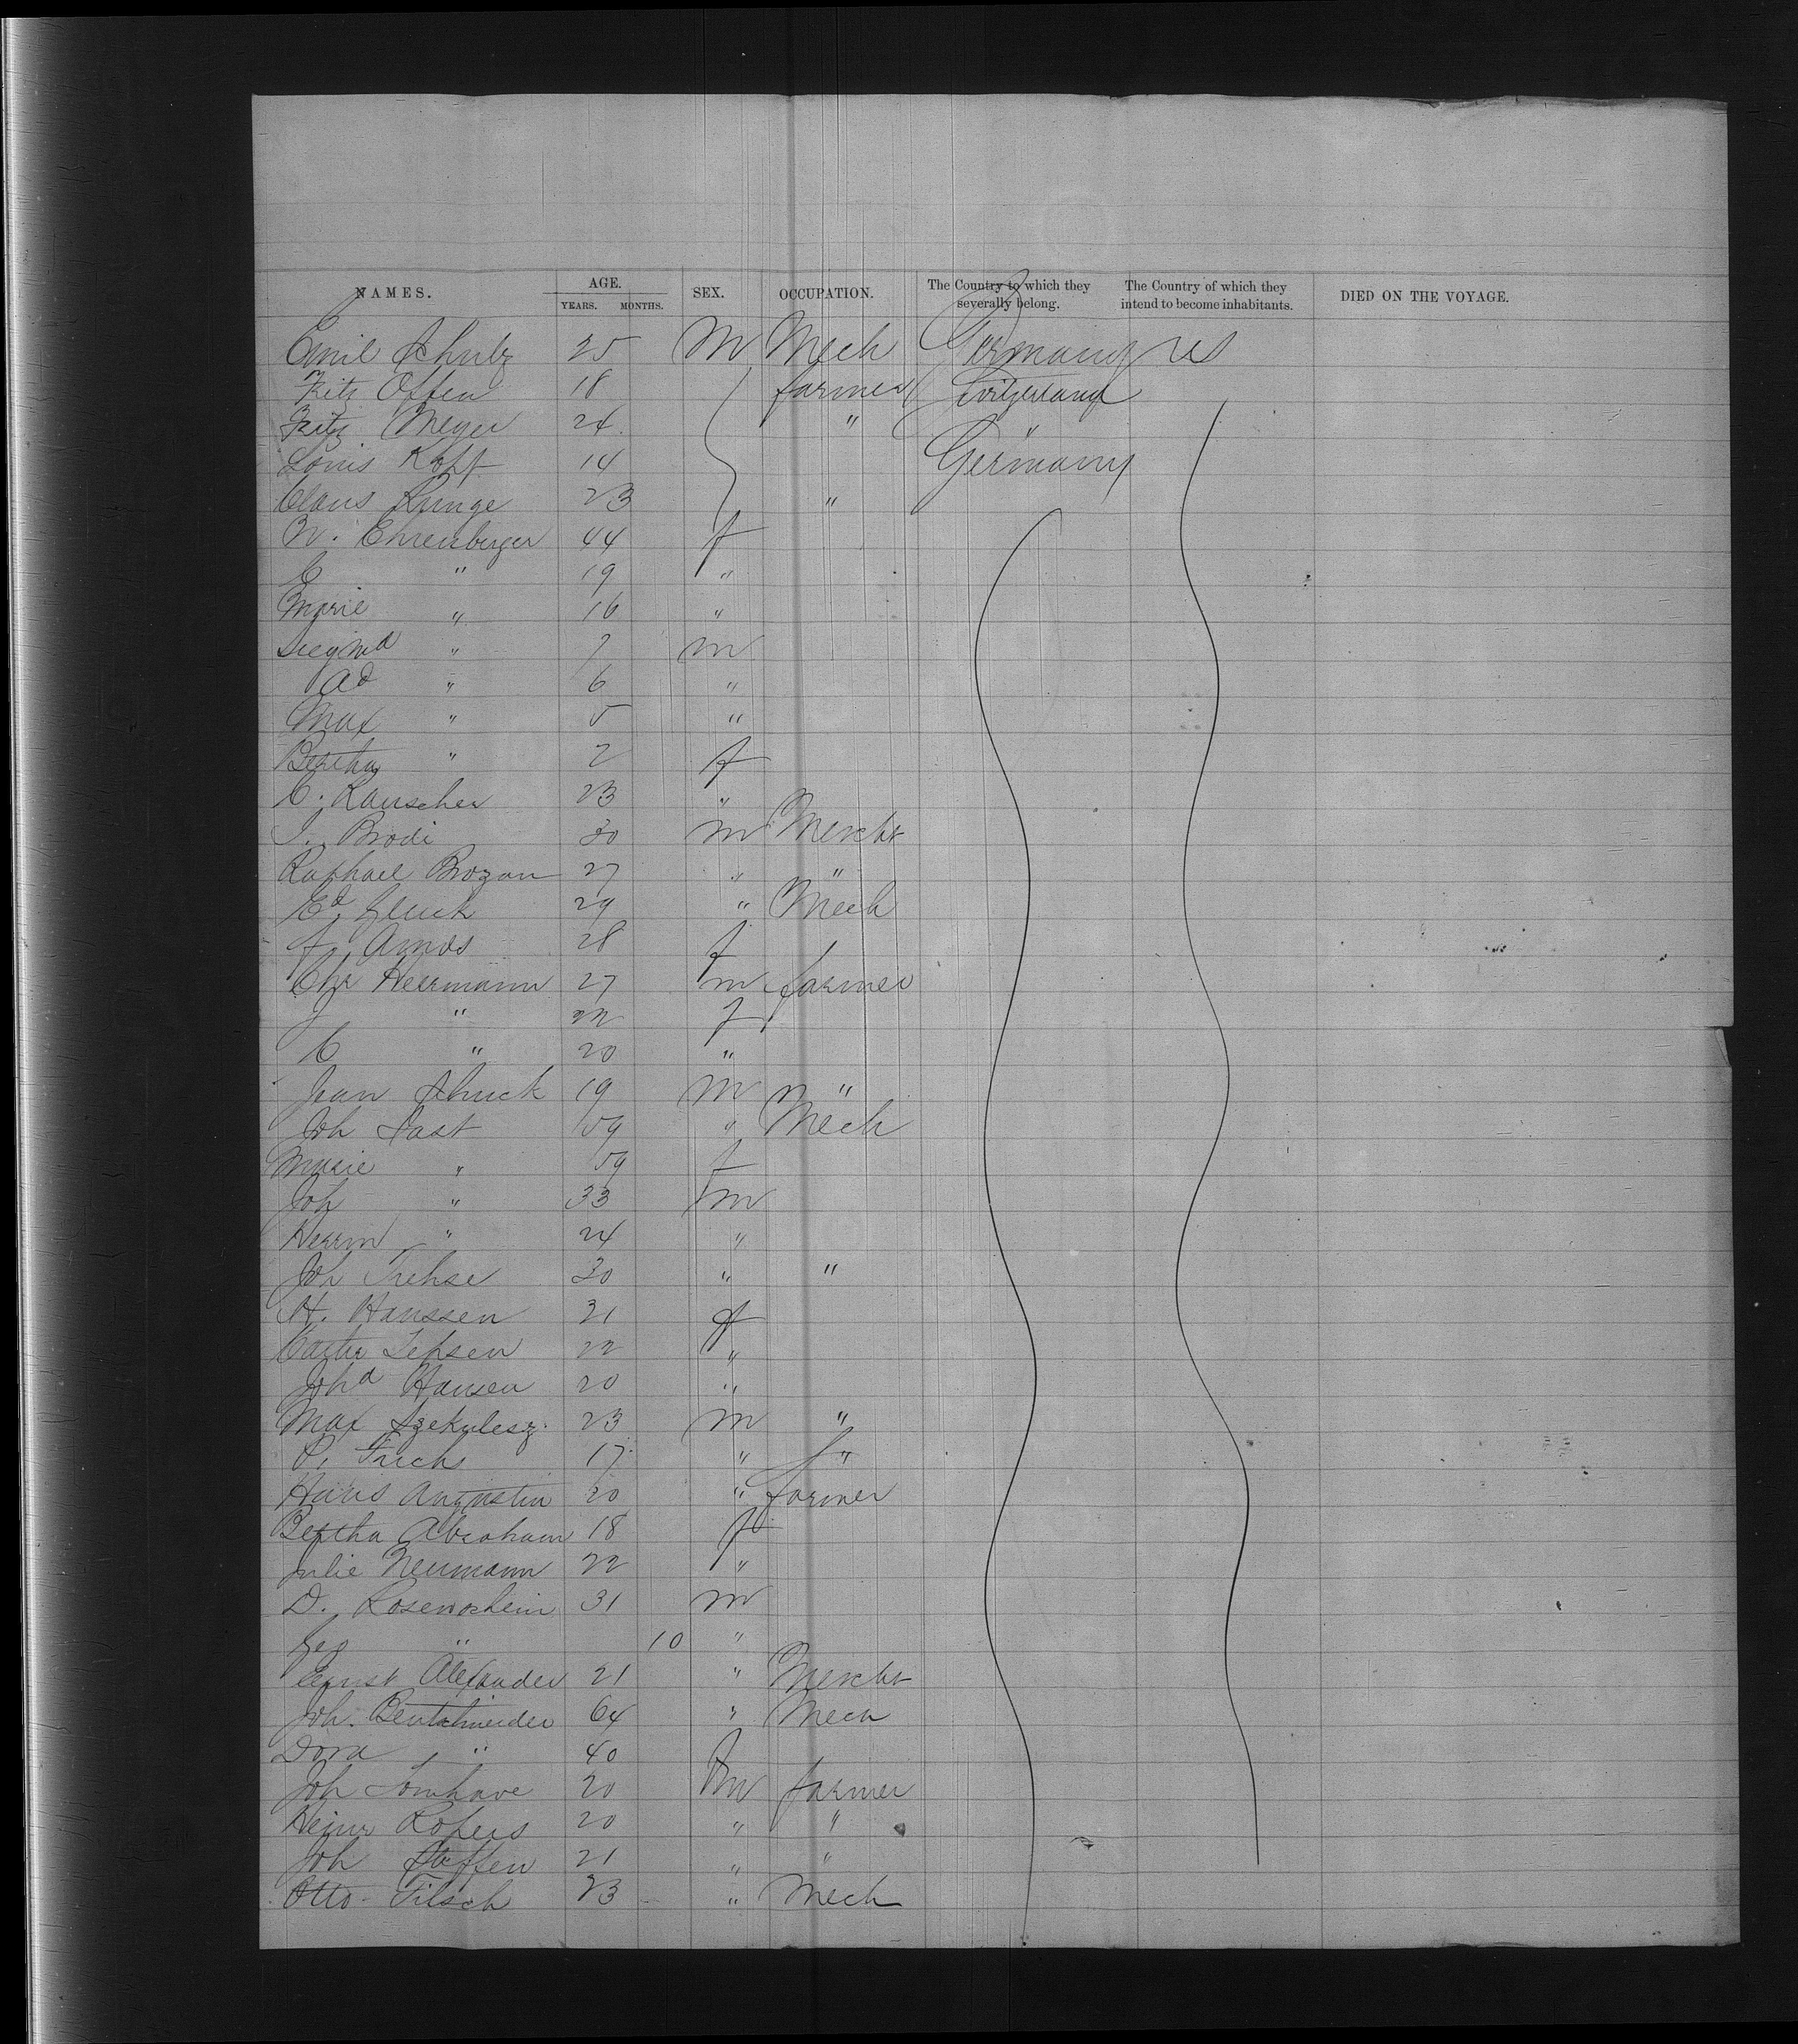 NAMES. AGE. SEX. OCCUPATION. The Country to which they severally belong. The Country of which they intend to become inhabitants. DIED ON THE VOYAGE.
YEARS. MONTHS.
Emil Schulz 25 M Mech Germany US
Fritz Offen 18 farmer Switzerland
Fritz Meyer 24 " "
Louis Kopf 14 Germany
Claus Runge 23 "
W. Ehrenberger 44 f
C " 19 "
Marie " 16 "
Siegmd " 7 m
Ad " 6 "
Max " 5 "
Bertha " 2 f
C. Rauscher 23 "
S. Brodi 30 m Mercht
Raphael Brozan 27 " "
Ed Gluck 29 " Mech
f. Arnds 28 f
Chr Herrmann 27 m farmer
J " 22 f
C " 20 "
Jean Schuck 19 M "
Joh Last 59 " Mech
Marie " 59 f
Joh " 33 m
Herrm " 24 "
Joh Trehse 30 " "
H. Hanssen 21 f
Cathr Jepsen 22 "
Johd Hansen 20 "
Max Szekulesz 23 m "
P. Fuchs 17 " "
Hans Augustin 20 " farmer
Bertha Abraham 18 f
Julie Neumann 22 "
D. 31 m
Geo " 10 "
Ernst Alexander 21 " Mercht
Joh. 64 " Mech
Dora " 40 f
Joh Tomhave 20 m farmer
Heinr Ropers 20 " "
Joh Steffen 21 " "
Otto Tilsch 23 " Mech